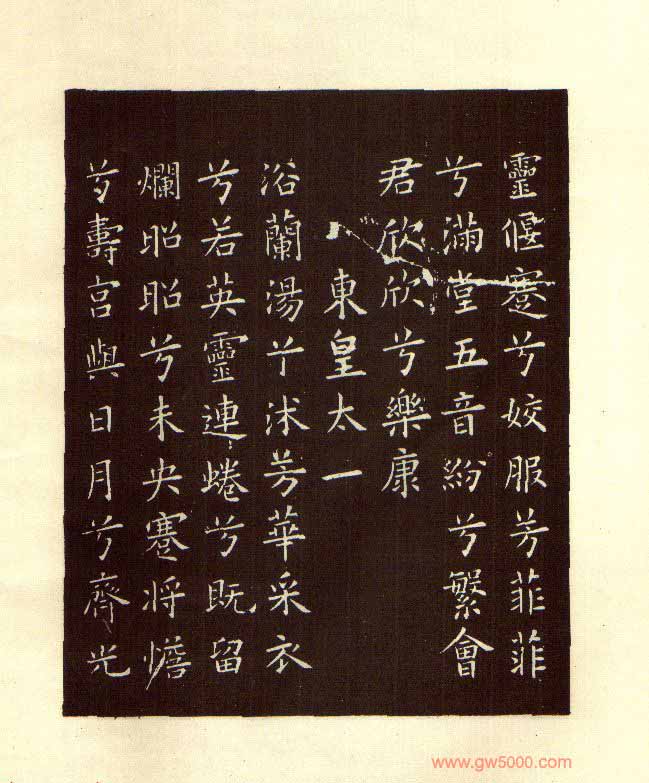 靈偃蹇兮姣服芳菲菲
兮滿堂五音紛兮繁會
君欣欣兮樂康
東皇太一
浴蘭湯兮沐芳華采衣
兮若英靈連蜷兮既留
爛昭昭兮未央蹇将憺
兮壽宮與日月兮齊光
www.gw5000.com